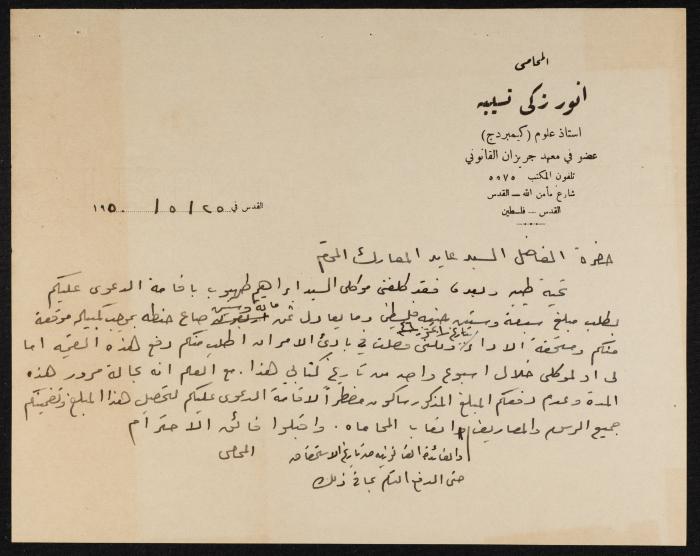 المحامى
انور زكى نسيبه
استاذ علوم (كيمبردج)
عضو في معهد جريزان القانوني
تلفون المكتب ٥٩٧٥
شارع مأمن الله — القدس
القدس — فلسطين
القدس في ٢٥ / ٥ / ١٩٥٠
حضرة الفاضل السيد عايد المعارك المحترم
تحية طيبه وبعد، فقد كلفني موكلي السيد ابراهيم طهبوب باقامة الدعوى عليكم
بطلب مبلغ سبعة وستين جنيه فلسطيني وما يعادل ثمن مائة وستين صاع حنطه بموجب كمبياله موقعة
منكم ومستحقة الاداء بتاريخ ولكنني فضلت في بادئ الامر ان اطلب منكم دفع هذه القيمه اما
لي او لموكلي خلال اسبوع واحد من تاريخ كتابي هذا. مع العلم انه بحالة مرور هذه
المدة وعدم دفعكم المبلغ المذكور ساكون مضطراً لاقامة الدعوى عليكم لتحصيل هذا المبلغ وتضمينكم
جميع الرسوم والمصاريف واتعاب المحاماه. واقبلوا فائق الاحترام
والفائدة القانونيه من تاريخ الاستحقاق المحامي
حتى الدفع التام بما في ذلك